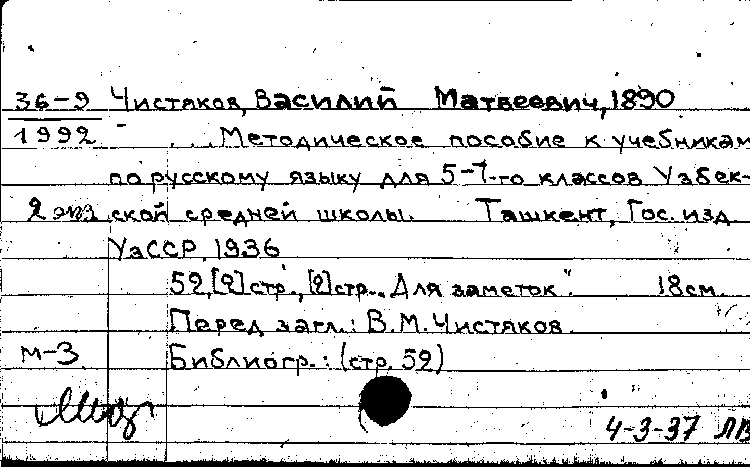 36-9 Чистяков, Василий Матвеевич, 1890
1992 - ... Методическое пособие к учебникам
по русскому языку для 5-7-го классов Узбек-
2 экз ской средней школы. Ташкент, Гос. изд
УзССР, 1936
52, [2] стр., [2] стр. „Для заметок". 18 см.
Перед загл.: В. М. Чистяков.
м-3 Библиогр.: (стр. 52)
4-3-37 ЛВ